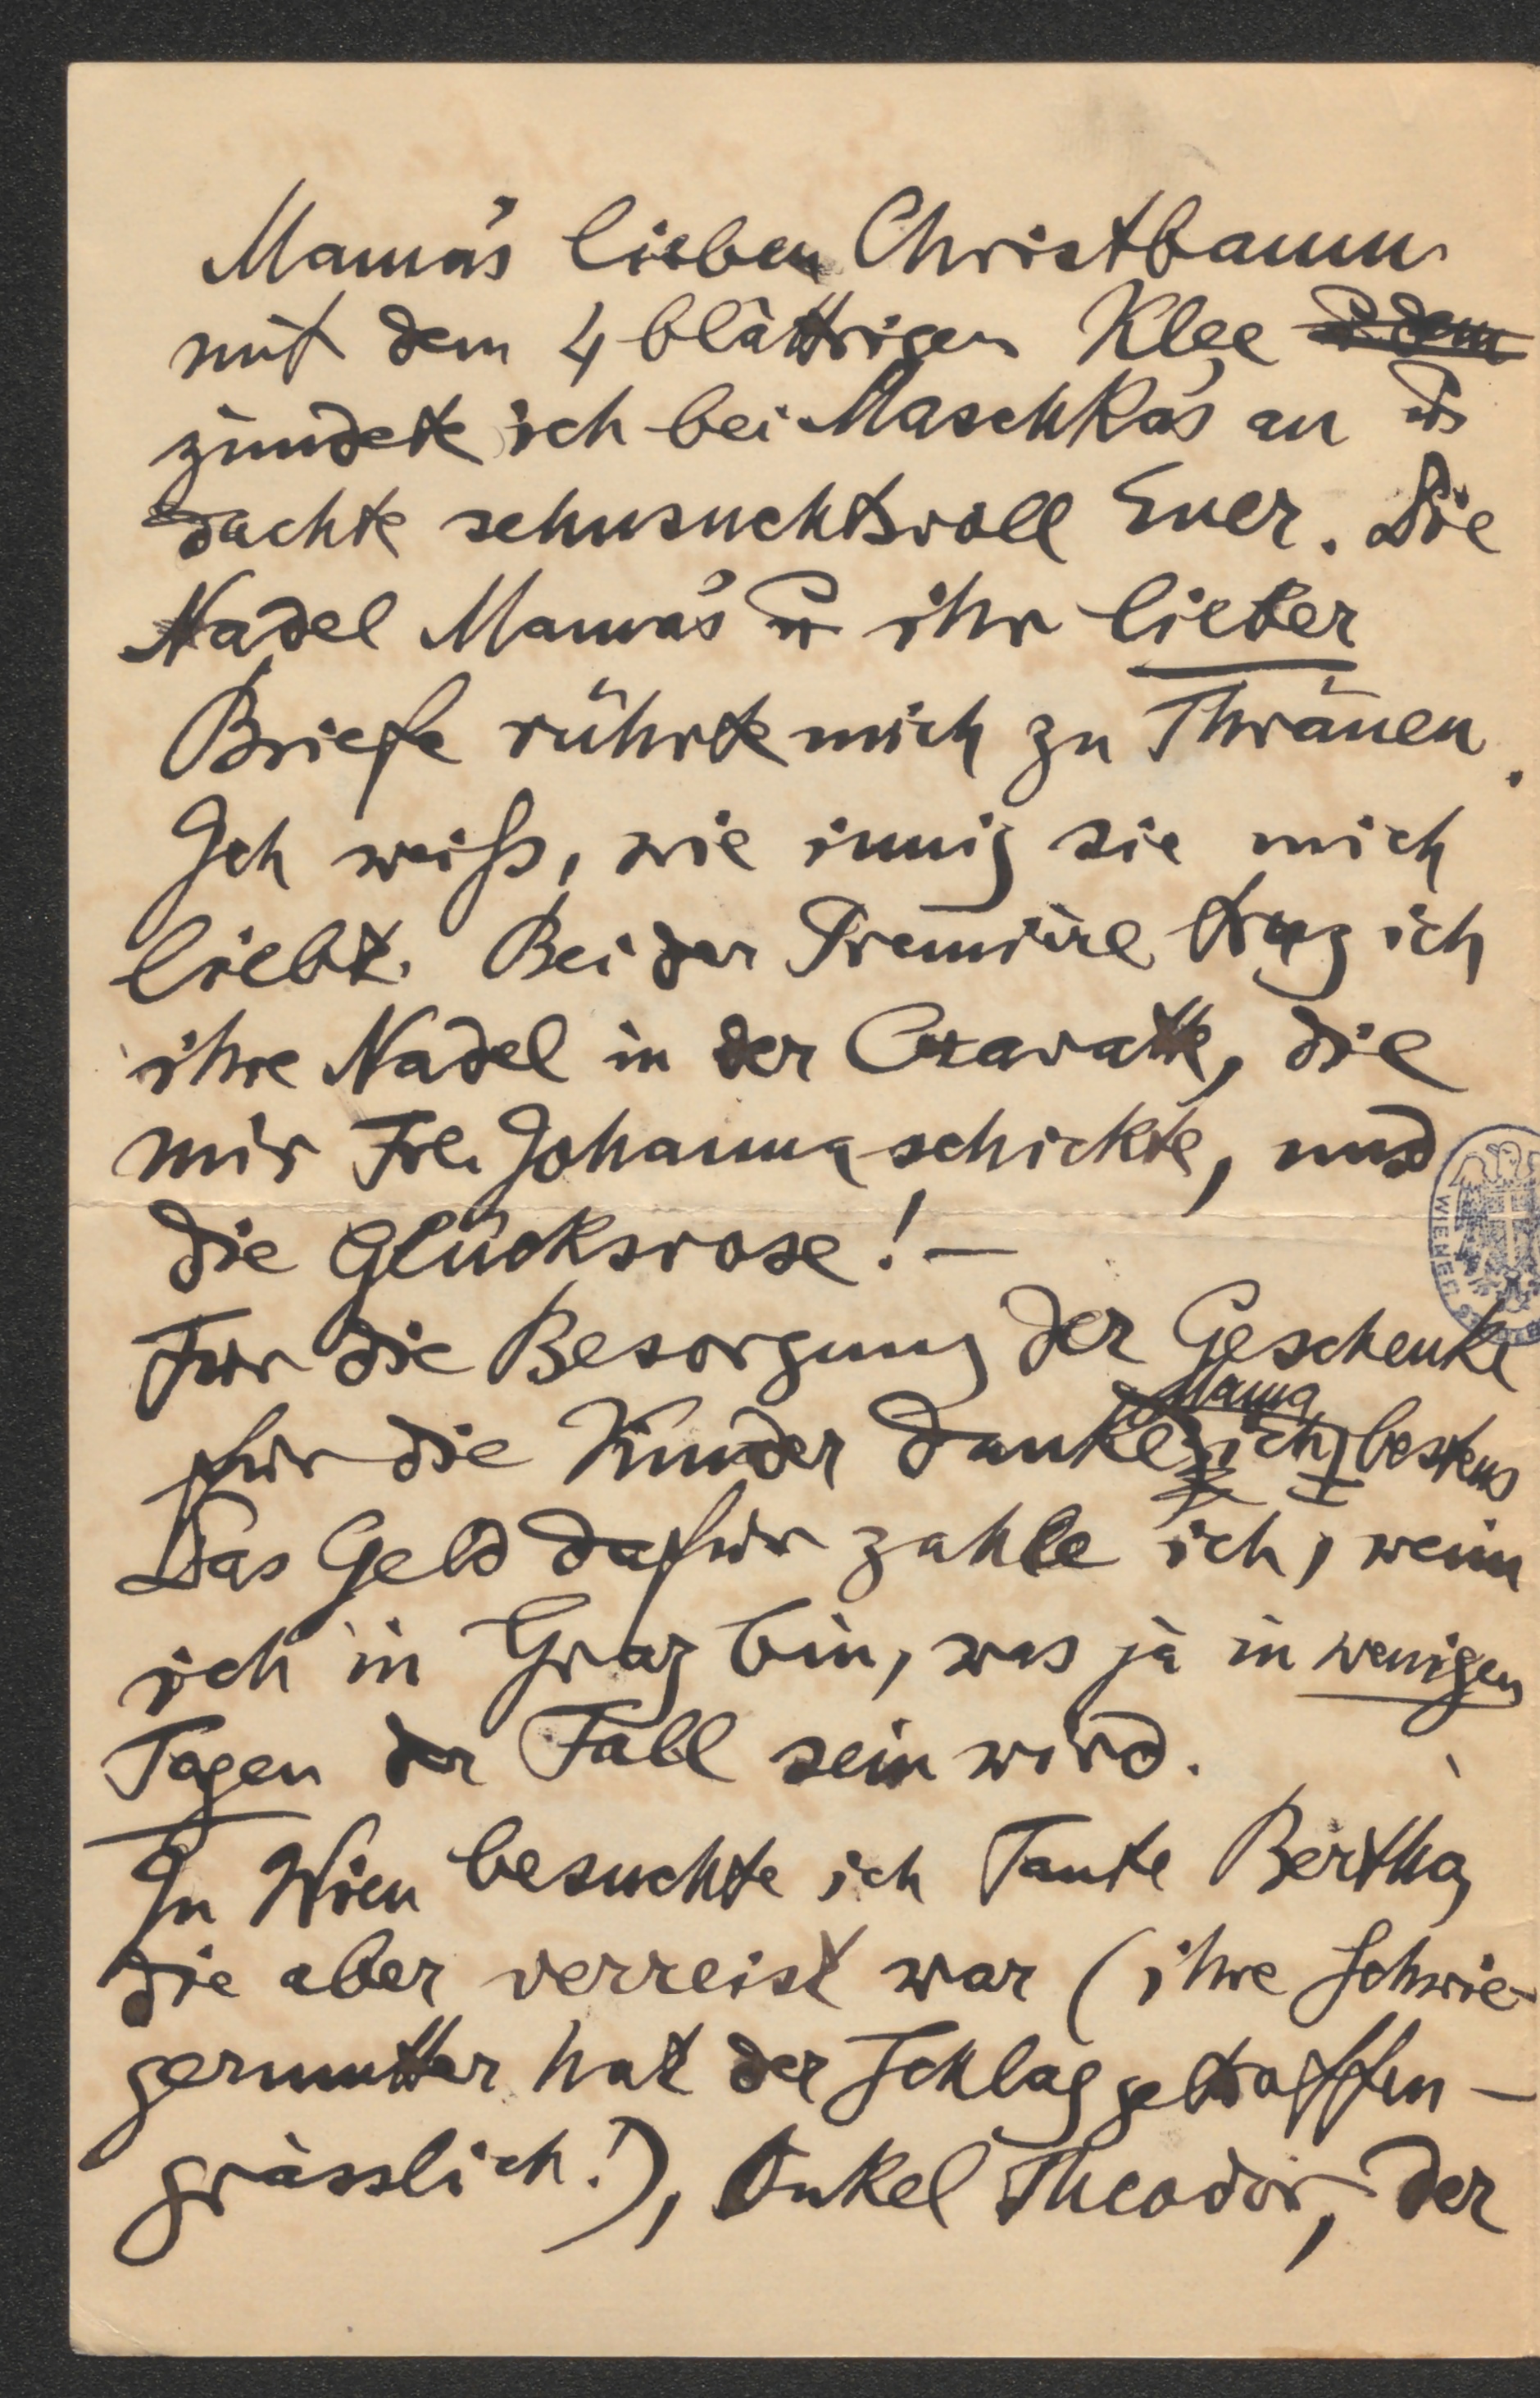 Mama's lieben Christbaum
mit dem 4 blättrigen Klee u. dem
zündete ich bei Maschka's an u.
dachte sehnsuchtsvoll Euer. Die
Nadel Mama's u ihr lieber
Briefe rührte mich zu Thränen.
Ich weiß, wie innig sie mich
liebt. Bei der Première trug ich
ihre Nadel in der Cravatte, die
mir Frl. Johanna schickte, und
die Glücksrose! —
Für die Besorgung der Geschenke
Mama
für die Kinder danke ich bestens
Das Geld dafür zahle ich, wenn
ich in Graz bin, was ja in wenigen
Tagen der Fall sein wird.
In Wien besuchte ich Tante Bertha,
die aber verreist war (ihre Schwie-
germutter hat der Schlag getroffen –
grässlich!), Onkel Theodor, der
WIENER